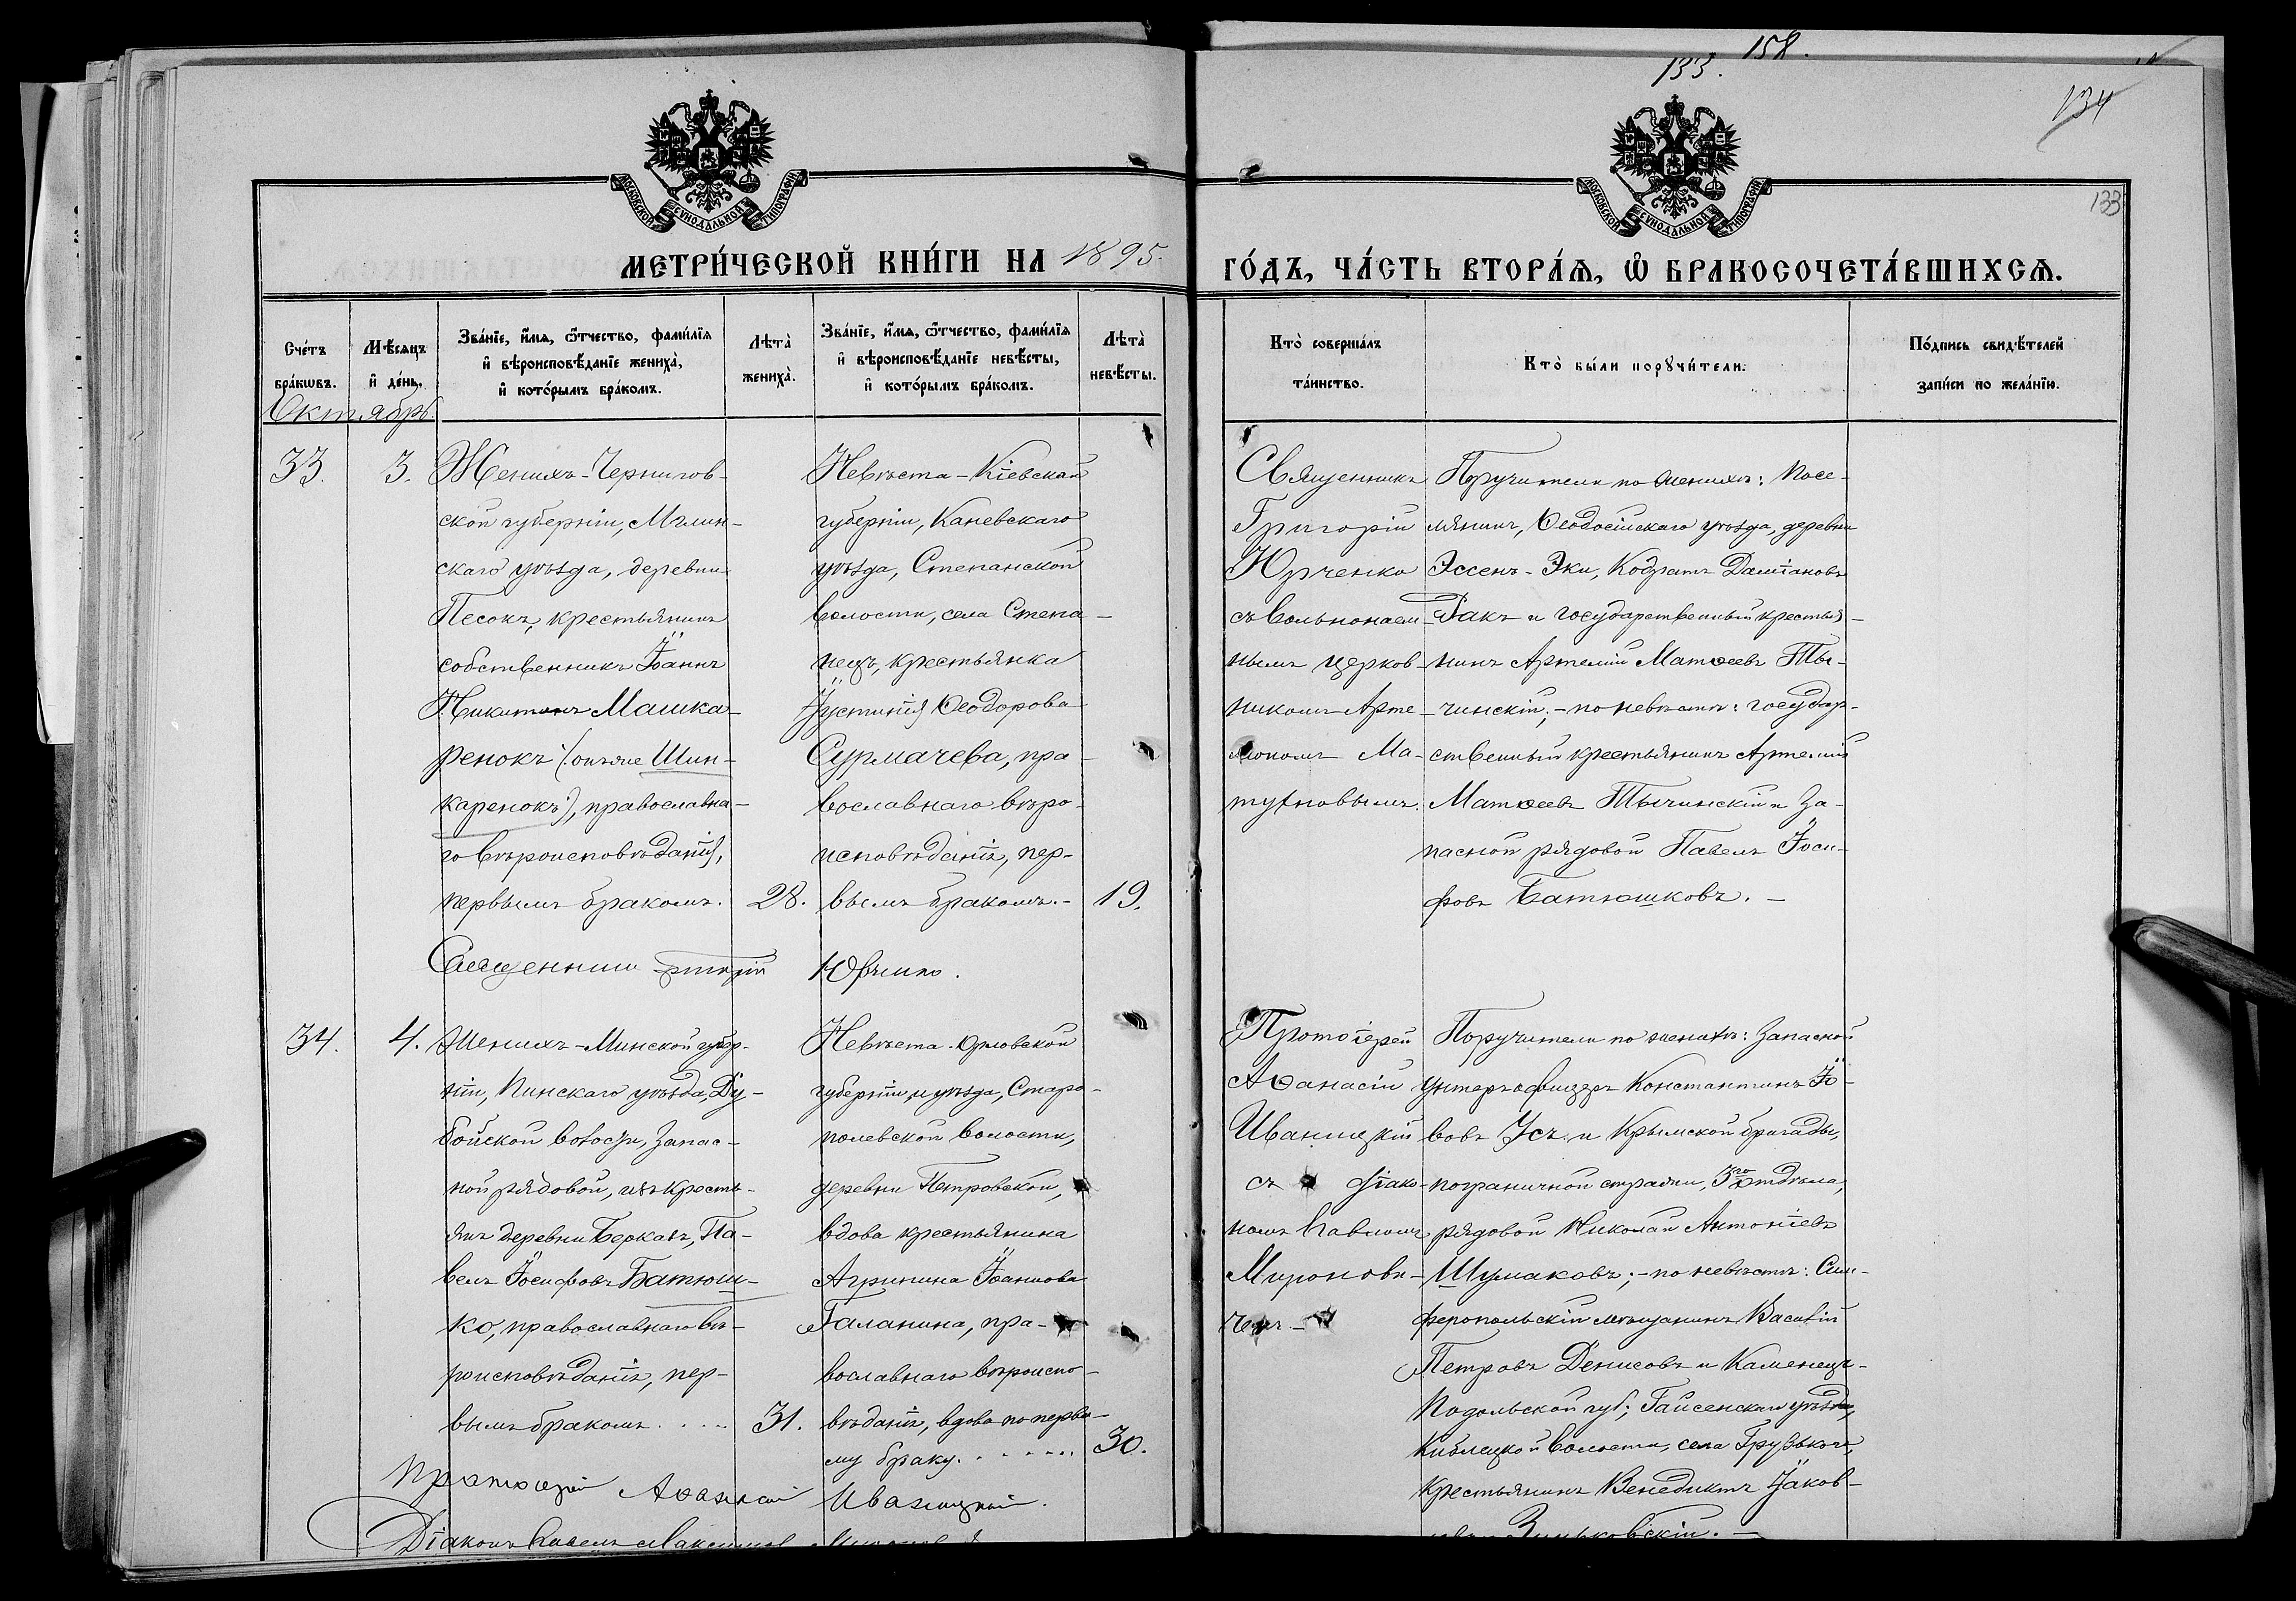 158.
133.
134
133
МОСКОВСКОЙ СѴНОДАЛЬНОЙ ТИПОГРАФІИ
МОСКОВСКОЙ СѴНОДАЛЬНОЙ ТИПОГРАФІИ
МЕТРИ́ЧЕСКОЙ КНИ́ГИ НА 1895.
ГО́ДЪ, ЧА́СТЬ ВТОРА́Ѧ, Ѽ БРАКОСОЧЕТА́ВШИХСѦ.
Сче́тъ
бра́кѡвъ.
Мѣ́сяцъ
и де́нь.
Зва́нїе, и́мѧ, ѻ́тчество, фами́лїѧ
и вѣроисповѣ́данїе жениха̀,
и кото́рымъ бра́комъ.
Лѣта̀
жениха̀.
Зва́нїе, и́мѧ, ѻ́тчество, фами́лїѧ
и вѣроисповѣ́данїе невѣ́сты,
и кото́рымъ бра́комъ.
Лѣта̀
невѣ́сты.
Кто̀ соверша́лъ
та́инство.
Кто̀ бы́ли порꙋчи́тели.
По́дпись свидѣ́телей
запи́си по жела́нїю.
Октябрь.
33.
3.
Женихъ-Чернигов-
ской губерніи, Мглин-
скаго уѣзда, деревни
Песокъ, крестьянинъ
собственникъ Іоаннъ
Никитинъ Машка-
ренокъ (:онъ же Шин-
каренокъ:), православна-
го вѣроисповѣданія,
первымъ бракомъ.
28.
Невѣста-Кіевской
губерніи, Каневскаго
уѣзда, Степанской
волости, села Степа-
нецъ, крестьянка
Іустинія Ѳеодорова
Сурмачева, пра-
вославнаго вѣро-
исповѣданія, пер-
вымъ бракомъ.-
19.
Священникъ Григорій Юрченко.
Священникъ
Григорій
Юрченко
съ вольнонаем-
нымъ церков-
никомъ Арте-
мономъ Ма-
тушовымъ.
Поручители по женихѣ: посе-
лянинъ, Ѳеодосійскаго уѣзда, деревни
Эссенъ-Эки, Кодратъ Даміановъ
Гакъ и государственный крестья-
нинъ Артемій Матѳеевъ Ты-
чинскій;-по невѣстѣ: государ-
ственный крестьянинъ Артемій
Матѳеевъ Тычинскій и за-
пасной рядовой Павелъ Іоси-
фовъ Батюшковъ.-
34.
4.
Женихъ-Минской губер-
ніи, Пинскаго уѣзда, Ду-
бойской волости, запас-
ной рядовой, изъ кресть-
янъ деревни Беркавъ, Па-
велъ Іосифовъ Батюш-
ко, православнаго вѣ-
роисповѣданія, пер-
вымъ бракомъ. . . .
31.
Невѣста-Орловской
губерніи, и уѣзда, Старо-
полевской волости,
деревни Петровской,
вдова крестьянина
Агрипина Іоаннова
Галанина, пра-
вославнаго вѣроиспо-
вѣданія, вдова по перво-
му браку. . . . . .
30.
Протоіерей Аѳанасій Иваницкій.
Діаконъ Павелъ
Протоіерей
Аѳанасій
Иваницкій
съ діако-
номъ Павломъ
Миронови-
чемъ.-
Поручители по женихѣ: запасной
унтеръ-офицеръ Константинъ Іо-
вовъ Усъ и Крымской бригады,
пограничной стражи, 3го отдѣла,
рядовой Николай Антоніевъ
Шумаковъ;-по невѣстѣ: Сим-
феропольскій мѣщанинъ Василій
Петровъ Денисовъ и Каменецъ-
Подольской губ; Гайсенскаго уѣзда,
Киблицкой волости, села Грузькаго,
крестьянинъ Венедиктъ Іаков-
левъ Зиньковскій.-